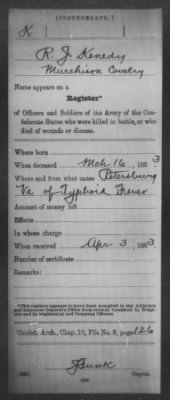 (CONFEDERATE.)
K
R. J. Kenedy
Murchison Cavalry
Name appears on a
Register*
of Officers and Soldiers of the Army of the Con-
federate States who were killed in battle, or who
died of wounds or disease.
Where born
When deceased Mch 16, 1863
Where and from what cause Petersburg
Va of Typhoid Fever
Amount of money left
Effects
In whose charge
When received Apr. 3, 1863.
Number of certificate
Remarks:
*This register appears to have been compiled in the Adjutant
and Inspector General's Office from records furnished by Hosp-
itals and by regimental and Company Officers.
Confed. Arch., Chap. 10, File No. 9, page 126
Copyist.